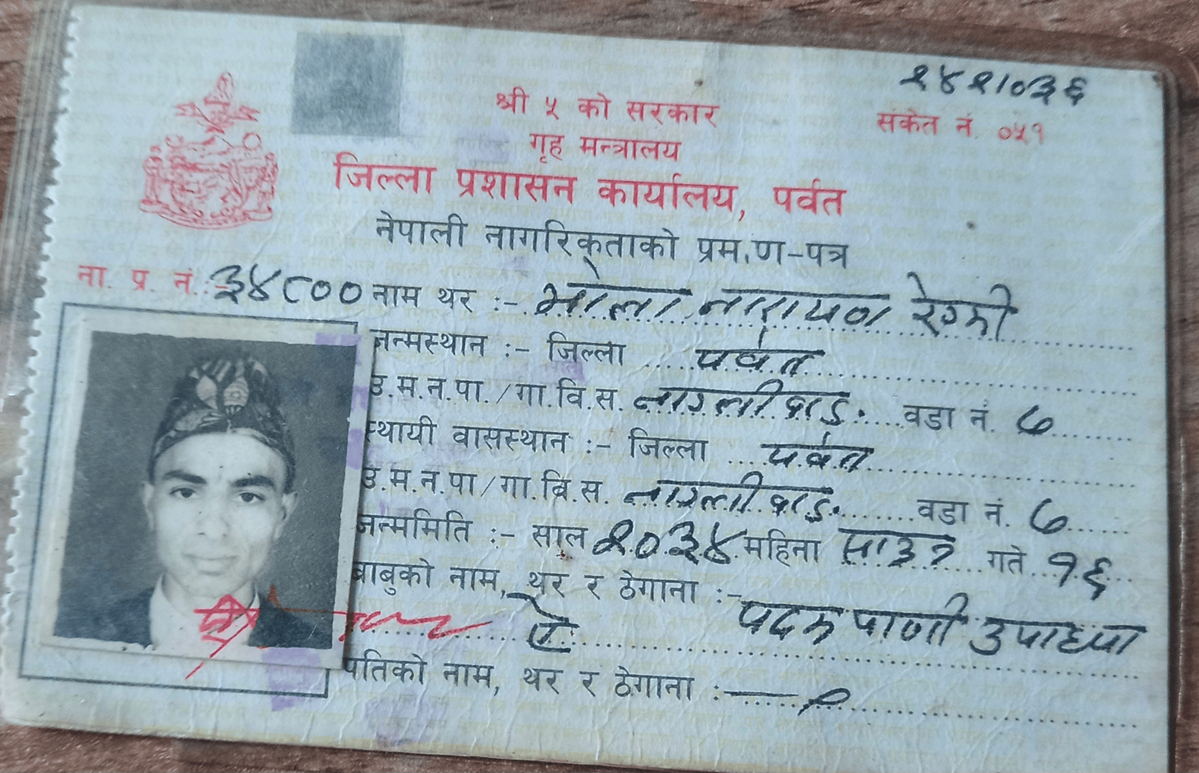 २४२।०३६
श्री ५ को सरकार
संकेत नं. ०५१
गृह मन्त्रालय
जिल्ला प्रशासन कार्यालय, पर्वत
नेपाली नागरिकताको प्रम.ण-पत्र
ना. प्र. नं. ३४८०० नाम थर :- भोला नारायण रेग्मी
जन्मस्थान :- जिल्ला पर्वत
उ.म.न.पा./गा.वि.स. वडा नं. ७
स्थायी वासस्थान :- जिल्ला पर्वत
उ.म.न.पा/गा.वि.स. वडा नं. ७
जन्ममिति :- साल २०३४ महिना गते १६
बाबुको नाम, थर र ठेगाना :-
पदम पाणी उपाध्या
ऐ
पतिको नाम, थर र ठेगाना :-